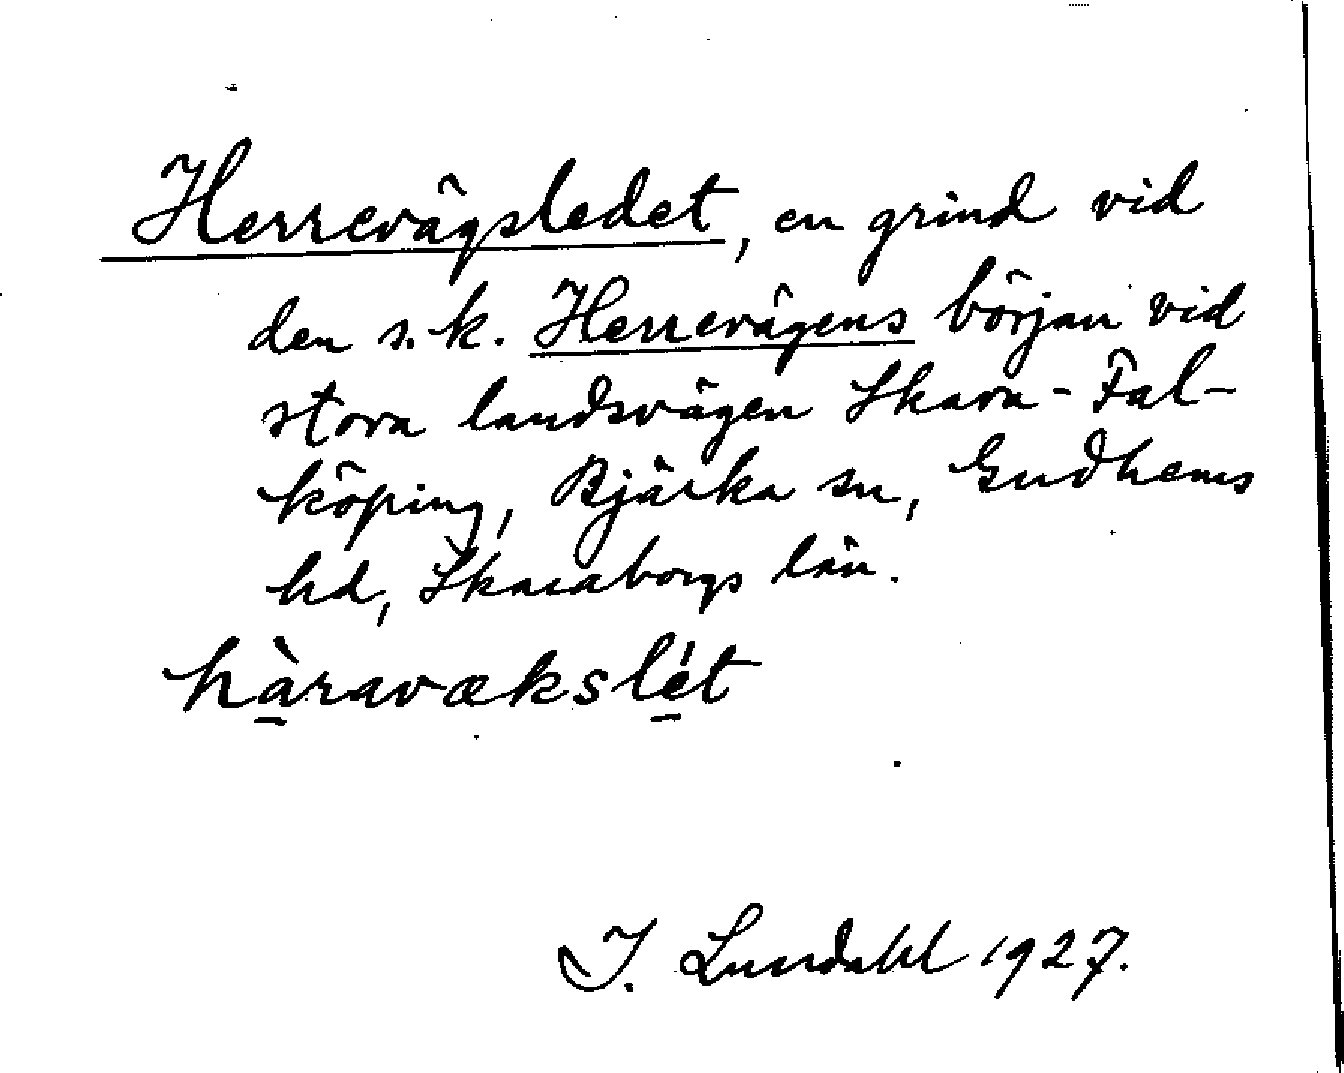 Herrevägsledet, en grind vid
den s.k. Herrevägens början vid
stora landsvägen Skara-Fal-
köping, Bjärka sn, Gudhems
hd, Skaraborgs län.
hàravækslét
I. Lundahl 1927.